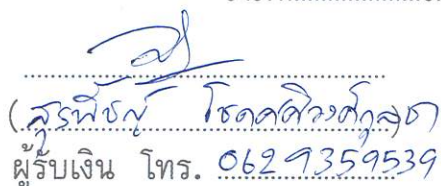 (สุรพิชญ์ โชคคติวงศ์กุลชา
ผู้รับเงิน โทร. 0629359539